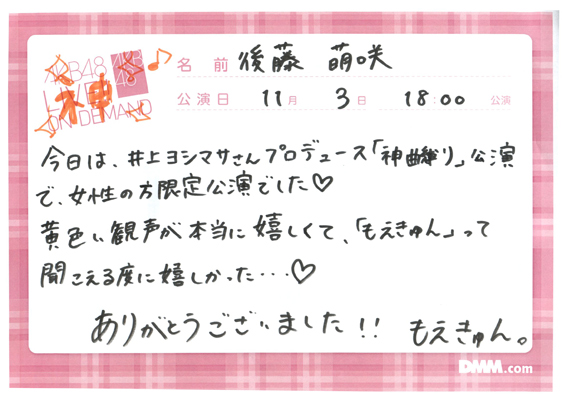 AKB48
LIVE!!
ON DEMAND
AKB
48
神
♪
名 前 後藤 萌咲
公演日 11月 3日 18:00 公演
今日は、井上ヨシマサさんプロデュース「神曲縛り」公演
で、女性の方限定公演でした♡
黄色い観声が本当に嬉しくて、「もえきゅん」って
聞こえる度に嬉しかった…♡
ありがとうございました!! もえきゅん。
DMM.com